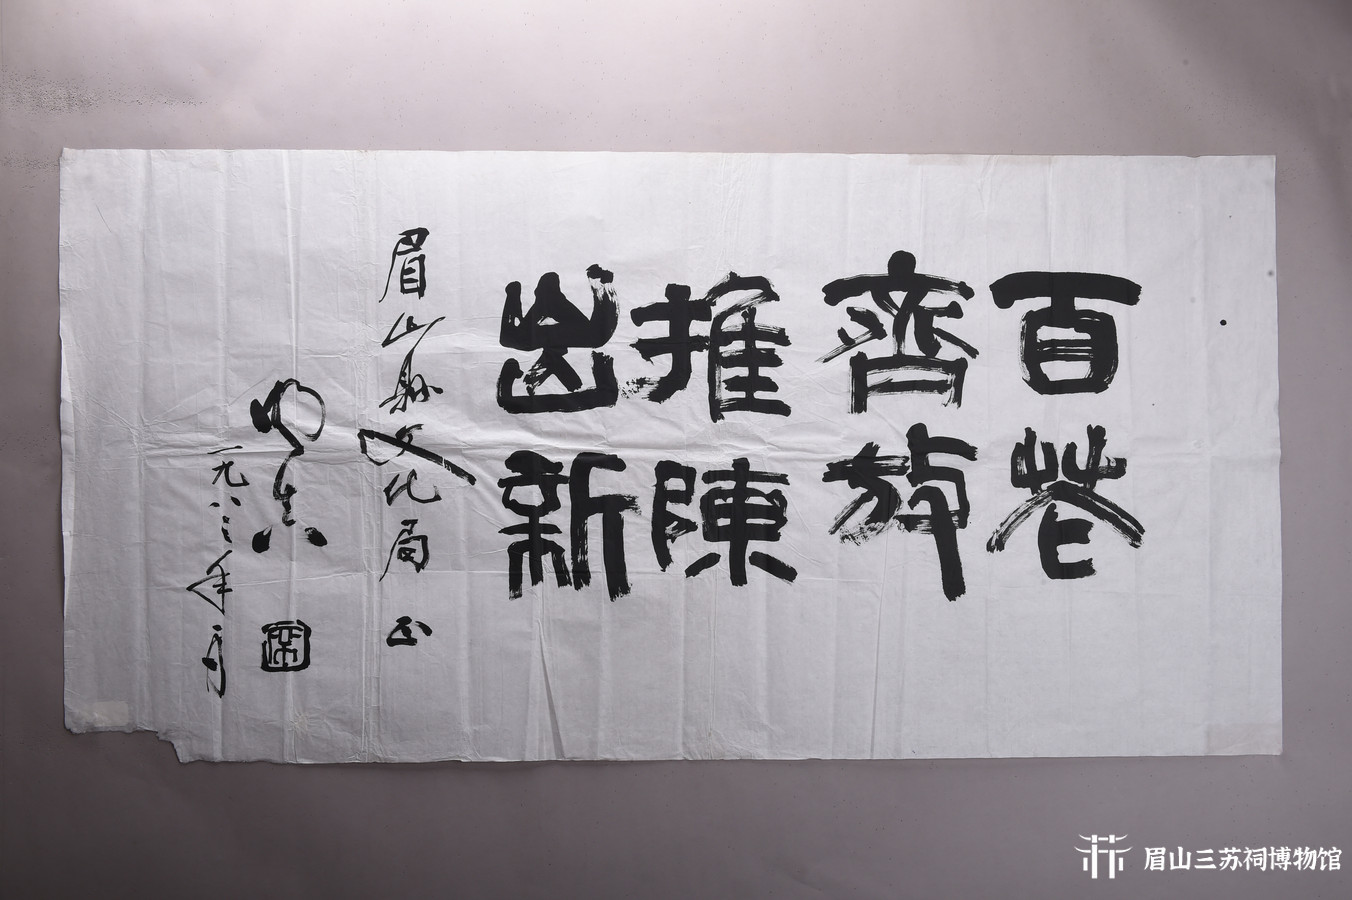 百花
齊放
推陳
出新
眉山縣文化局正
一九八三年一月
眉山三苏祠博物馆